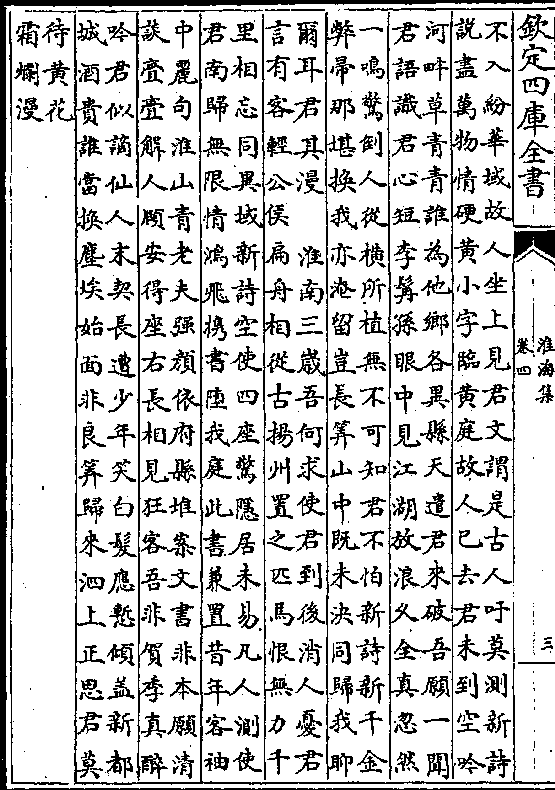 欽定四庫全書
淮海集
卷四
三
不入紛華域故人坐上見君文謂是古人吁莫測新詩
說盡萬物情硬黃小字臨黃庭故人已去君未到空吟
河畔草青青誰為他鄉各異縣天遣君來破吾願一聞
君語識君心短李髯孫眼中見江湖放浪久全真忽然
一鳴驚倒人從橫所植無不可知君不怕新詩新千金
弊帚那堪換我亦淹留豈長筭山中既未決同歸我聊
爾耳君其漫　淮南三歲吾何求使君到後消人憂君
言有客輕公侯扁舟相從古揚州置之匹馬恨無力千
里相忘同異域新詩空使四座驚隱居未易凡人測使
君南歸無限情鴻飛携書墮我庭此書兼置昔年客袖
中麗句淮山青老夫强顏依府縣堆案文書非本願清
談亹亹解人頤安得座右長相見狂客吾非賀季真醉
吟君似謫仙人末契長遭少年笑白髮應慙傾蓋新都
城酒貴誰當換塵埃始面非良筭歸來泗上正思君莫
待黃花
霜爛漫